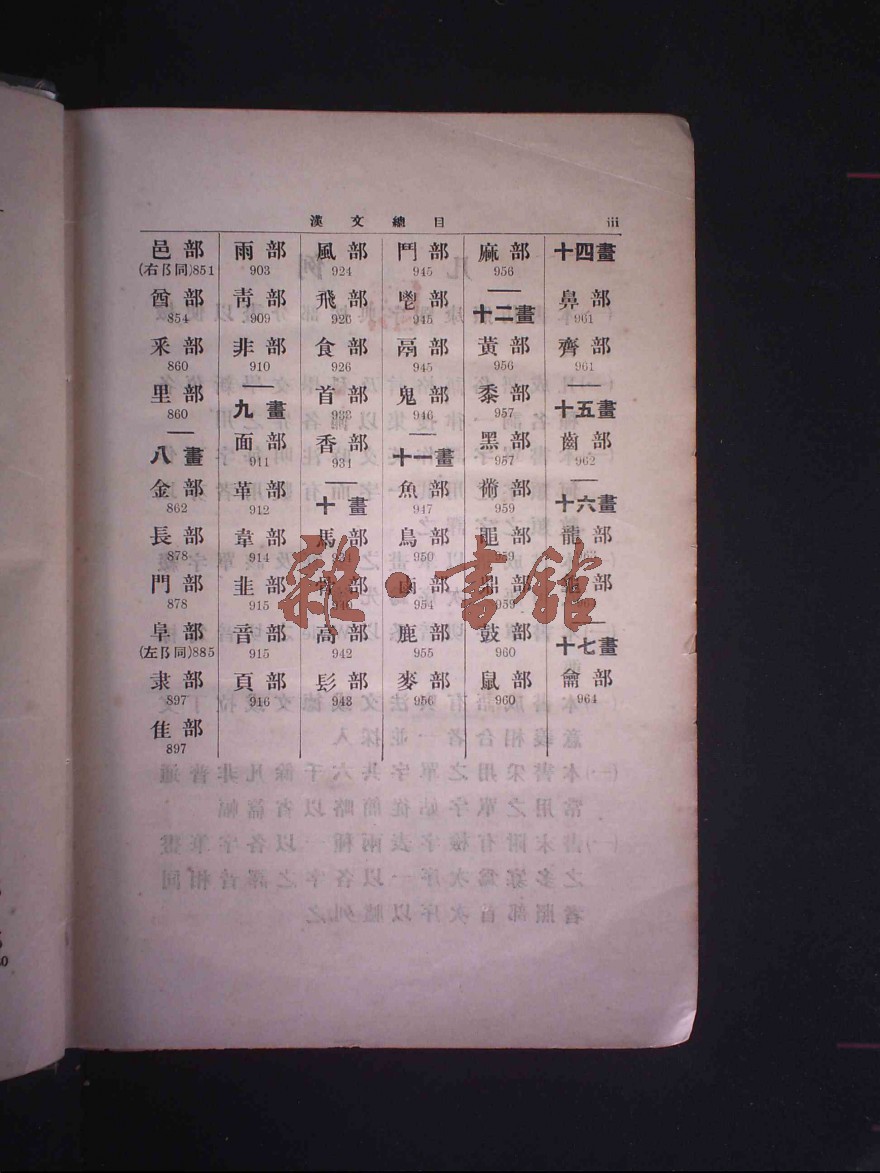 漢文總目 iii
邑部
(右阝同)851
酋部
854
釆部
860
里部
860
八畫
金部
862
長部
878
門部
878
阜部
(左阝同)885
隶部
897
隹部
897
雨部
903
靑部
909
非部
910
九畫
面部
911
革部
912
韋部
914
韭部
915
音部
915
頁部
916
風部
924
飛部
926
食部
926
首部
香部
931
十畫
馬部
骨部
高部
942
髟部
943
鬥部
945
鬯部
945
鬲部
945
鬼部
946
十一畫
魚部
947
鳥部
950
鹵部
954
鹿部
955
麥部
956
麻部
956
十二畫
黃部
956
黍部
957
黑部
957
黹部
959
黽部
959
鼎部
959
鼓部
960
鼠部
960
十四畫
鼻部
961
齊部
961
十五畫
齒部
962
十六畫
龍部
龜部
十七畫
龠部
964
雜·書館